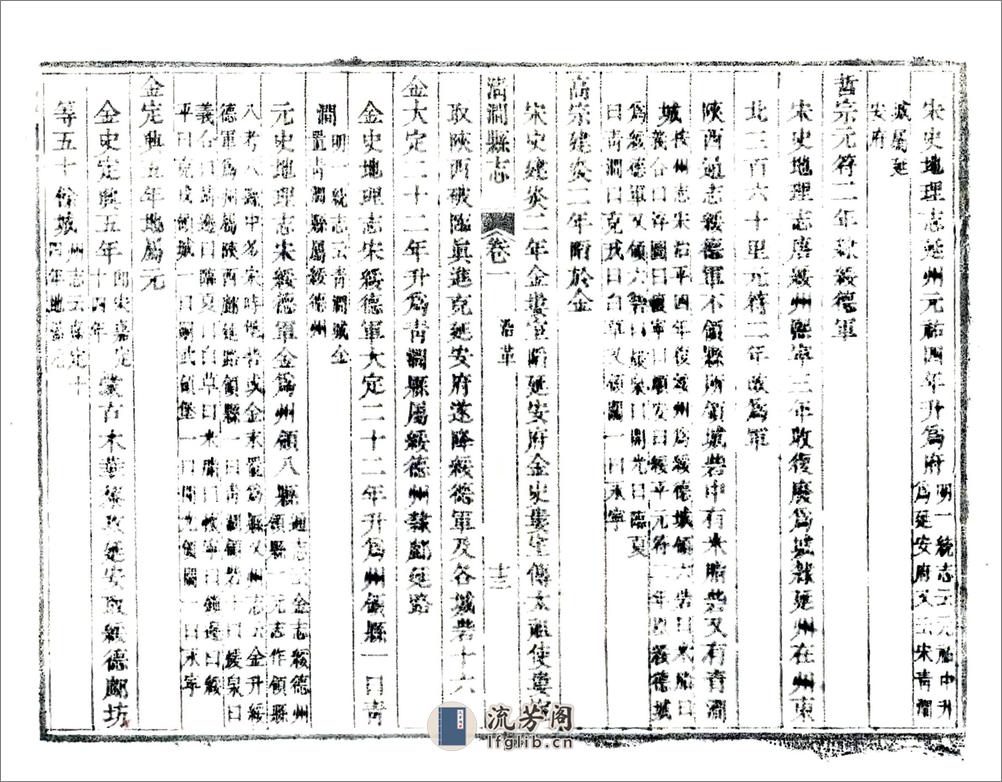 宋史地理志延州元祐四年升爲府明一統志云元祐中升爲延安府又云宋青澗
城屬延安府
哲宗元符二年隸綏德軍
宋史地理志唐綏州熙寧三年收復廢爲城隸延州在州東
北三百六十里元符二年改爲軍
陝西通志綏德軍不領縣所領城砦中有米脂砦又有青澗
城按州志宋治平四年復綏州爲綏德城領六砦曰米脂曰義合曰浮圖曰懷寧曰順安曰綏平元符二年以綏德城
爲綏德軍又領六砦曰暖泉曰開光曰臨夏曰青澗曰克戎曰白草又領關一曰永寧
高宗建炎二年陷於金
宋史建炎二年金婁室陷延安府金史婁室傳太祖使婁室
清澗縣志 卷一 沿革 志
取陝西破臨眞進克延安府遂降綏德軍及各城砦十六
金大定二十二年升爲青澗縣屬綏德州隸鄜延路
金史地理志宋綏德軍大定二十二年升爲州領縣一曰青
澗明一統志云青澗城金置青澗縣屬綏德州
元史地理志宋綏德軍金爲州領八縣通志云金志綏德州領縣一元志作領縣
八考八縣中名宋時堡砦或金末置爲縣又州志云金升綏德軍爲州屬陝西鄜延路領縣一曰青澗領砦十曰綏泉曰
義合曰 曰臨夏曰白草曰米脂曰懷寧曰鎮邊曰綏平曰克戎領城一曰嗣武領堡一曰開光領關一曰永寧
金定興五年地屬元
金史定興五年卽宋嘉定十四年蒙古木華黎攻延安取綏德鄜坊
等五十餘城州志云嘉定十四年地屬元
流芳阁
lfglib.cn